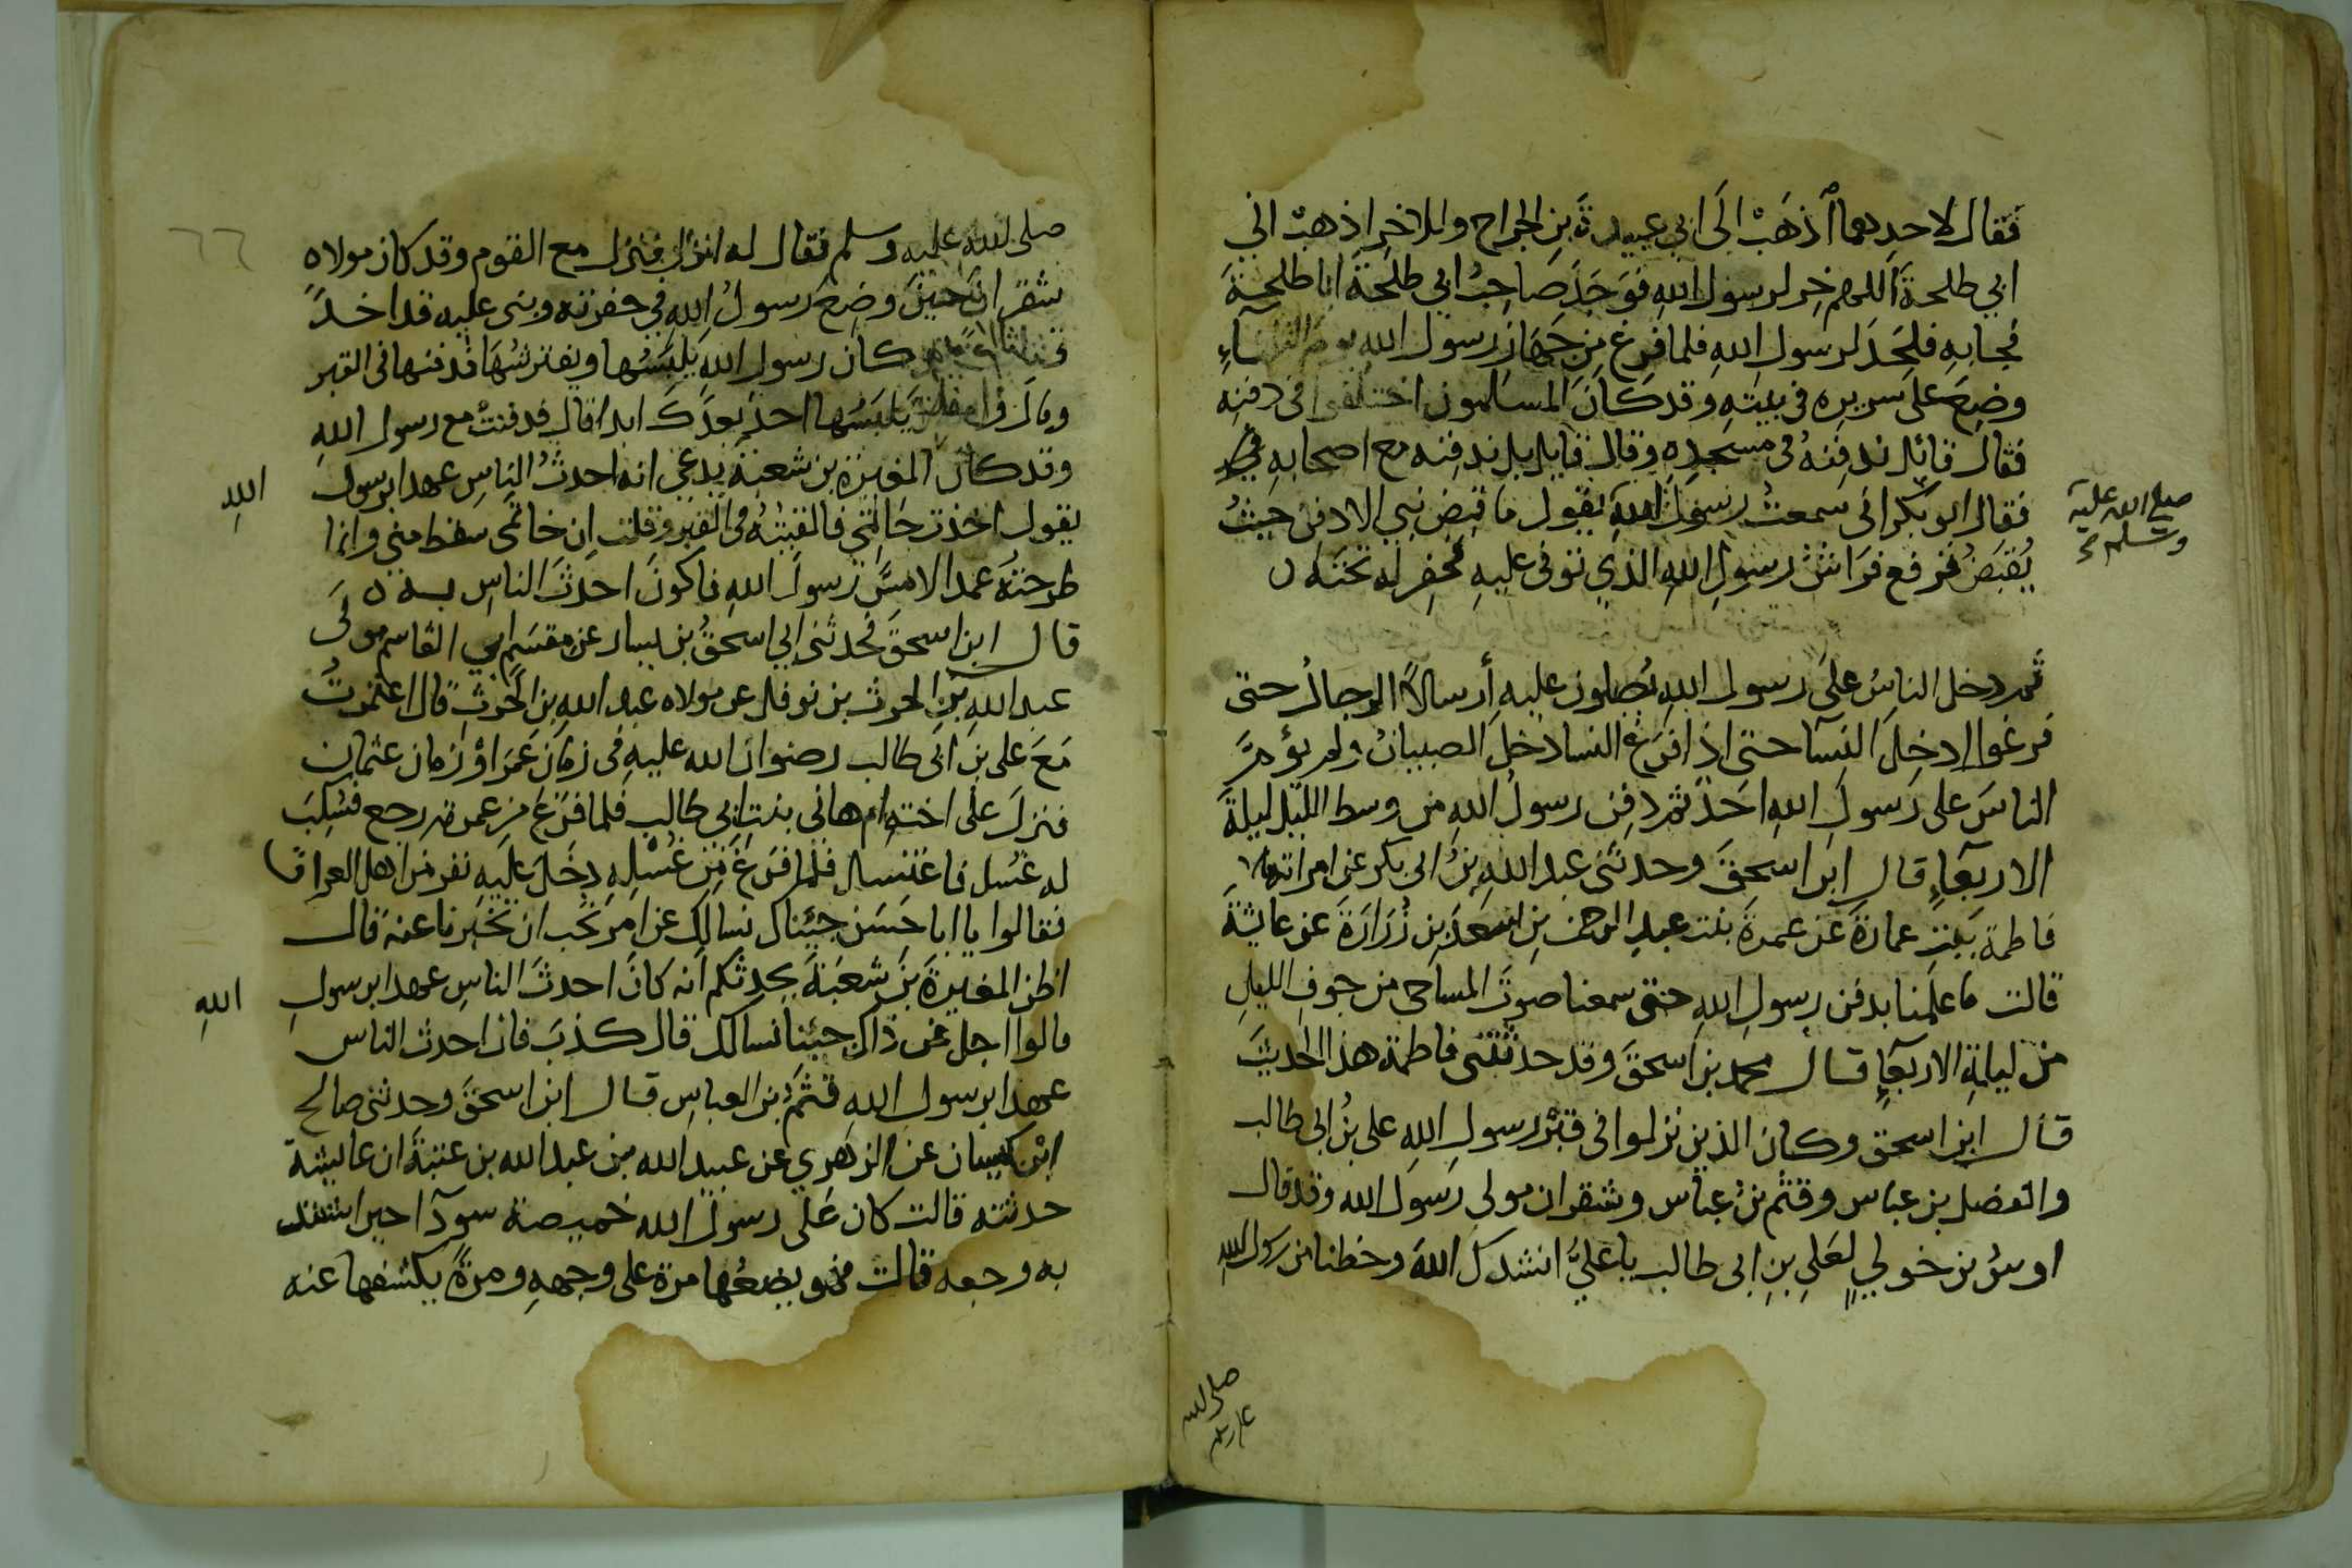 فقال لاحدهما اذهَبْ الَى ابي عبيدةَ بنِ الجراح وللاخرِ اذهبْ الي
ابي طلحةَ اَللهم خِر لرسول اللهِ فوَجَدَ صَاحِبُ ابي طلحَةَ ابا طلحةَ
فجا به فلحَدَ لرسول اللهِ فلما فرغ مِن جَهَازِ رسول اللهِ يومَ الثلثاءِ
وضِعَ على سريره في بيتهِ وقد كانَ المسلمون اختلفوا في دفنِه
فقال قائل ندفِنهُ في مسجدِه وقال قايل بل ندفِنه مع اصحابه
فقال ابو بكر انى سمعتُ رسولَ اللهِ يقول ما قبِضَ نبي الا دفن حيثُ
صلى الله عليه
وسلم
يُقبَضُ فرفع فرَاشُ رسولِ اللهِ الذي توفى عليهِ فحُفِر له تحتَه
ثُم دخل الناسُ على رسول اللهِ يُصلون عليهِ أرسالًا الرجالُ حتى
فرغوا ادخِلَ النسآ حتى اذا فرَغَ النسا دخلَ الصبيانُ ولم يؤمَّ
الناسَ على رَسولِ اللهِ احَدٌ ثم دفِنَ رسولُ اللهِ من وسط الليل ليلةَ
الاربعآءِ قال ابن اسحقَ وحدثنى عبد اللهِ بنُ ابى بكر عن امراته
فاطمة بنتِ عمارةَ عن عمرةَ بنت عبدِ الرحمن بنِ اسعَدَ بنِ زُرَارَةَ عن عايشةَ
قالت ما علمنا بدفن رسولِ اللهِ حتى سمعنا صوتَ المساحى من جوفِ الليلِ
من ليلةِ الاربعآءِ قال محمد بن اسحقَ وقد حدثتنى فاطمة هذا الحديثَ
قال ابن اسحق وكان الذين نزلوا في قبْر رسولِ اللهِ على بنُ ابى طالب
والفضل بن عباس وقثم بنُ عباس وشقران مولى رَسول الله وقد قال
اوسُ بن خولي لعَلِي بنِ ابى طالب يا عليُّ انشدك اللهَ وحظنا من رسول الله
صلى الله
عليه وسلم
٦٦
صلى الله عليه وسلم فقال له انزل فنزل مع القوم وقد كان مولاه
شقران حينَ وضِعَ رَسولُ اللهِ في حفرته وبنى عليه قد اخذَ
كان رسول اللهِ يَلبَسُها ويفترشُها فدفنها في القبر
وقال يَلبَسُها احدٌ بعدَكَ ابدا قال فدفنتْ مع رسول اللهِ
وقد كان المغيرة بن شعبة يدعى انه احدثُ الناسِ عهدا برسول
اللهِ
يقول اخذت خاتمي فالقيتُهُ في القبر وقلت اِن خاتمى سقط مني وانما
طرحتهُ عمدا لامسَّ رسولَ اللهِ فاكونَ احدثَ الناسِ به
قال ابن اسحقَ فحدثنى ابي اسحقُ بن يسار عن مقسَمٍ ابي القاسم مولَى
عبد اللهِ بن الحرث بن نوفل عن مولاه عبد الله بن الحرثِ قال اعتمرتُ
مَعَ على بن ابى طالب رضوان الله عليهِ في زمانِ عُمَرَ اوْ زمان عثمان
فنزلَ على اختهِ ام هانى بنتِ ابي طالبٍ فلما فرغَ من عمرته رجع فسُكِبَ
له غُسل فاغتسل فلما فرغَ مِن غُسْلِهِ دخَلَ عليهِ نفر من اهل العراق
فقالوا يا ابا حَسَن جئناك نسالك عن امر نحب ان تخبِرنا عنه قال
اظن المغيرةَ بن شعبَةَ يحدثكم انه كانَ احدثَ الناسِ عهدا برسولِ
اللهِ
قالوا اجل عن ذاك جئنا نسالك قال كذبَ قال احدث الناس
عهدا برسولِ اللهِ قثمُ بن العباسِ قال ابن اسحقَ وحدثنى صالح
ابن كيسان عن الزهري عن عبيد الله بن عبد الله بن عتبةَ ان عايشة
حدثته قالت كان عَلى رسول الله خميصة سودآ حين اشتد
به وجعه قالت فهو يضعُها مرة على وجههِ ومرةً يكشفها عنه